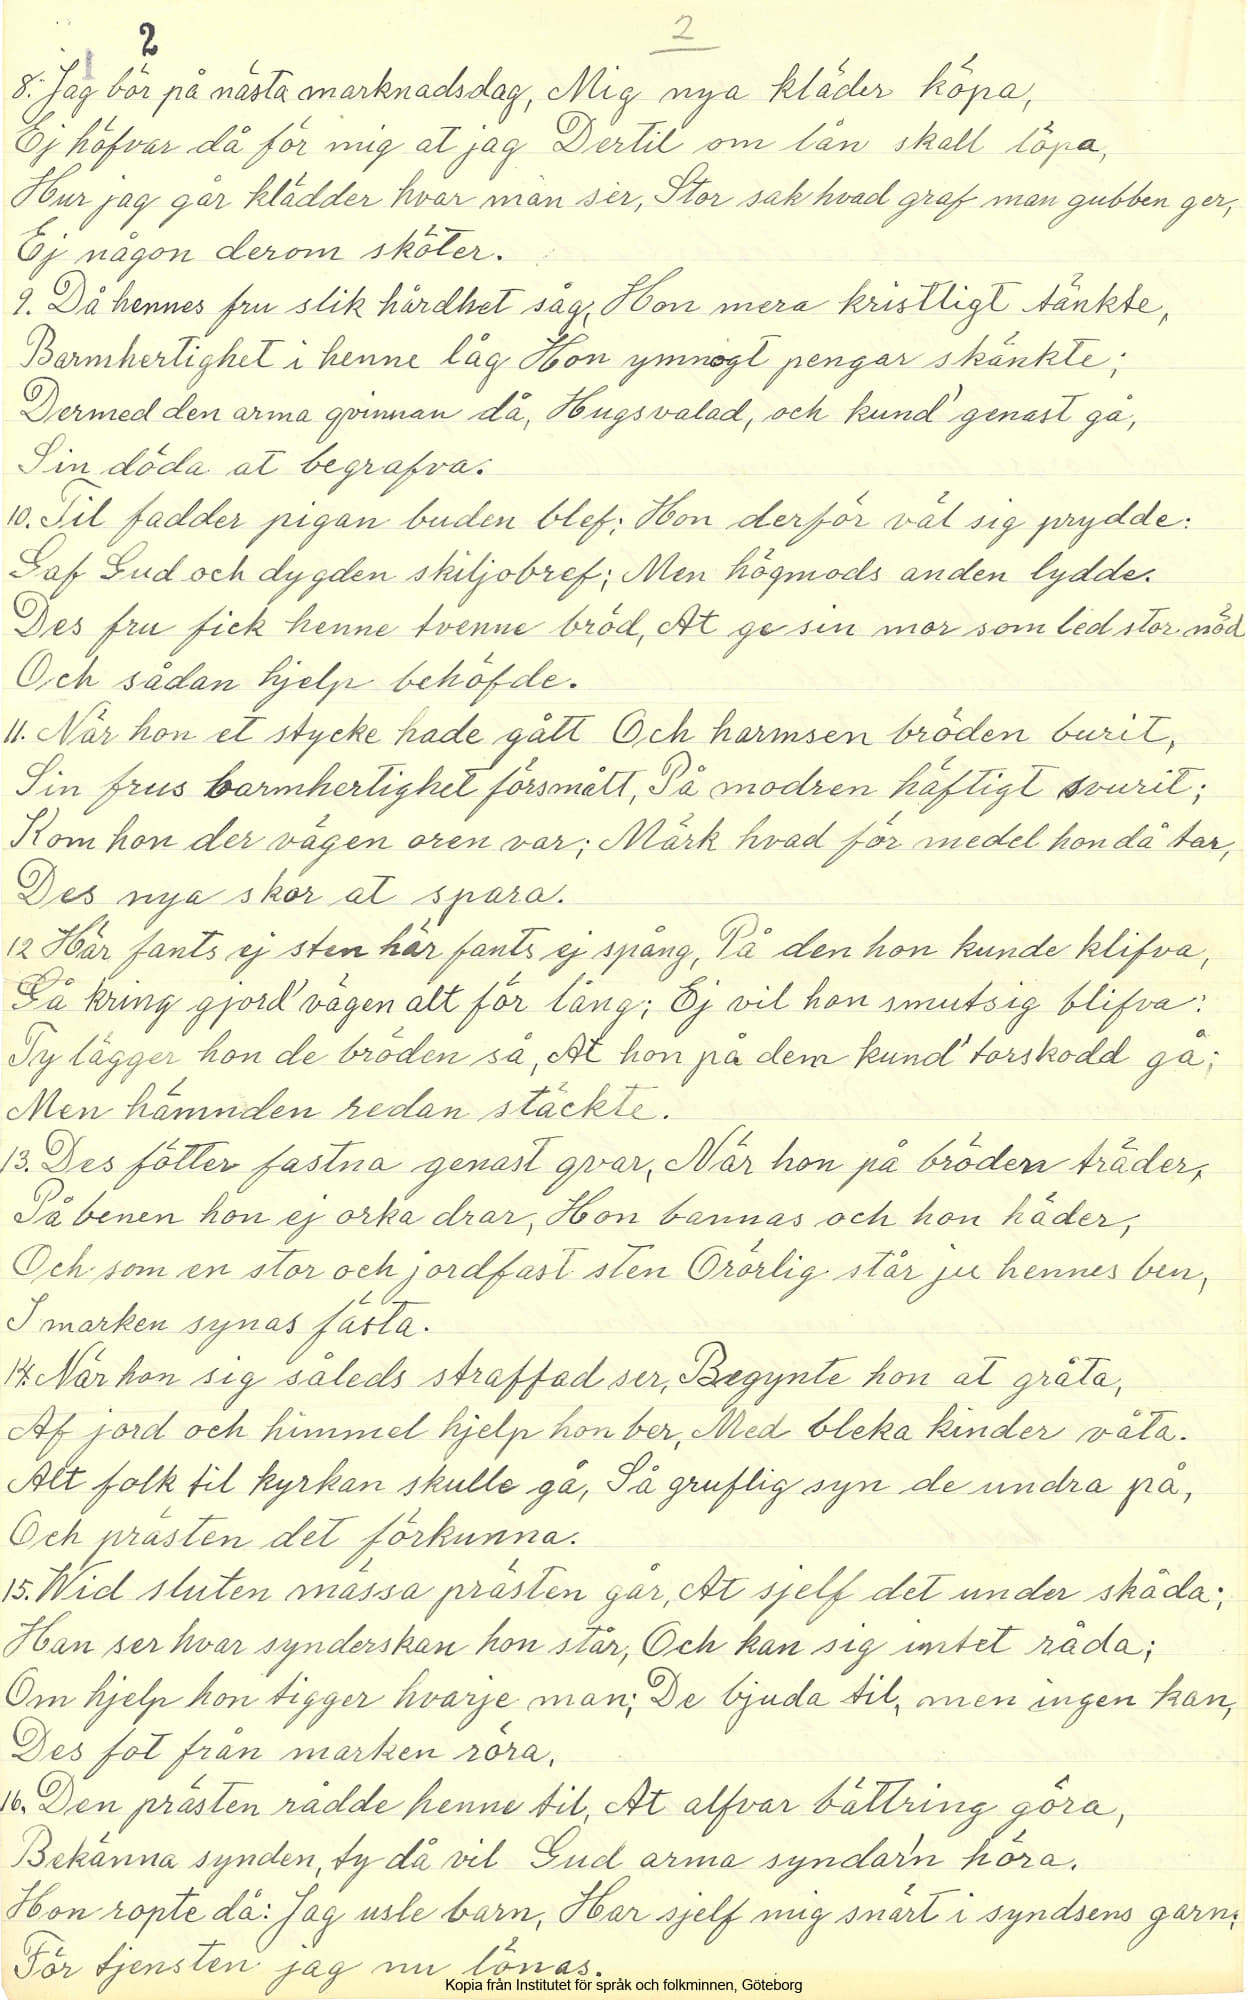 2
2
8. Jag bör på nästa marknadsdag, Mig nya kläder köpa,
Ej höfvar då för mig at jag Dertil om lån skall löpa,
Hur jag går klädder hvar man ser, Stor sak hvad graf man gubben ger,
Ej någon derom sköter.
9. Då hennes fru slik hårdhet såg, Hon mera kristligt tänkte,
Barmhertighet i henne låg Hon ymnogt pengar skänkte;
Dermed den arma qvinnan då, Hugsvalad, och kund' genast gå,
Sin döda at begrafva.
10. Til fadder pigan buden blef; Hon derför väl sig prydde:
Gaf Gud och dygden skiljobref; Men högmods anden lydde.
Des fru fick henne tvenne bröd, At ge sin mor som led stor nöd
Och sådan hjelp behöfde.
11. När hon et stycke hade gått Och harmsen bröden burit,
Sin frus barmhertighet försmått, På modren häftigt svurit;
Kom hon der vägen oren var; Märk hvad för medel hon då tar,
Des nya skor at spara.
12 Här fants ej sten här fants ej spång, På den hon kunde klifva,
Gå kring gjord' vägen alt för lång; Ej vil hon smutsig blifva:
Ty lägger hon de bröden så, At hon på dem kund' torskodd gå;
Men hämnden redan stäckte.
13. Des fötter fastna genast qvar, När hon på bröden träder,
På benen hon ej orka drar, Hon bannas och hon häder,
Och som en stor och jordfast sten Orörlig står ju hennes ben,
I marken synas fästa.
14. När hon sig såleds straffad ser, Begynte hon at gråta,
Af jord och himmel hjelp hon ber, Med bleka kinder våta.
Alt folk til kyrkan skulle gå, Så gruflig syn de undra på,
Och prästen det förkunna.
15. Wid sluten mässa prästen går, At sjelf det under skåda;
Han ser hvar synderskan hon står, Och kan sig intet råda;
Om hjelp hon tigger hvarje man; De bjuda til, men ingen kan,
Des fot från marken röra.
16. Den prästen rådde henne til, At alfvar bättring göra,
Bekänna synden, ty då vil Gud arma syndar'n höra.
Hon ropte då: Jag usle barn, Har sjelf mig snärt i syndsens garn;
För tjensten jag nu lönas.
Kopia från Institutet för språk och folkminnen, Göteborg